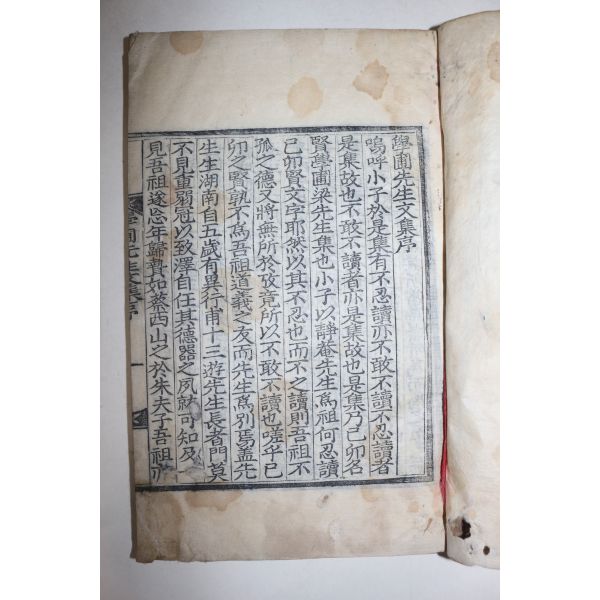 學圃先生文集序
嗚呼小子於是集有不忍讀亦不敢不讀不忍讀者
是集故也不敢不讀者亦是集故也是集乃己卯名
賢學圃梁先生集也小子以靜菴先生爲祖何忍讀
己卯賢文字耶然以其不忍也而不之讀則吾祖不
孤之德又將無所於攷竟所以不敢不讀也嗟乎己
卯之賢孰不爲吾祖道義之友而先生爲別焉盖先
生生湖南自五歲有異行甫十三遊先生長者門莫
不見重弱冠以致澤自任其德器之夙就可知及
見吾祖遂忘年歸贄如蔡西山之於朱夫子吾祖亦
學圃先生文集序
一